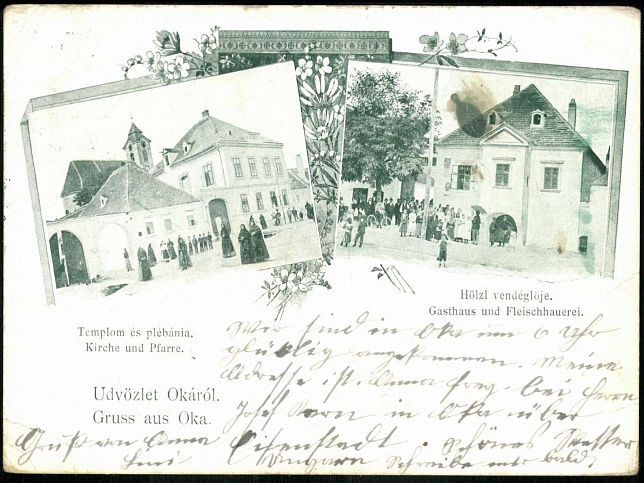 Hölzl vendéglöje.
Gasthaus und Fleischhauerei.
Templom és plébánia.
Kirche und Pfarre.
Üdvözlet Okáról.
Gruss aus Oka.
Wir sind in Oka um 6 Uhr
glücklich angekommen. Meine
Adresse ist. Anna bei Herrn
Josef in Oka über
Eisenstadt. Schönes Wetter
Ungarn Schreibe mir bald.
Gruß von Anna